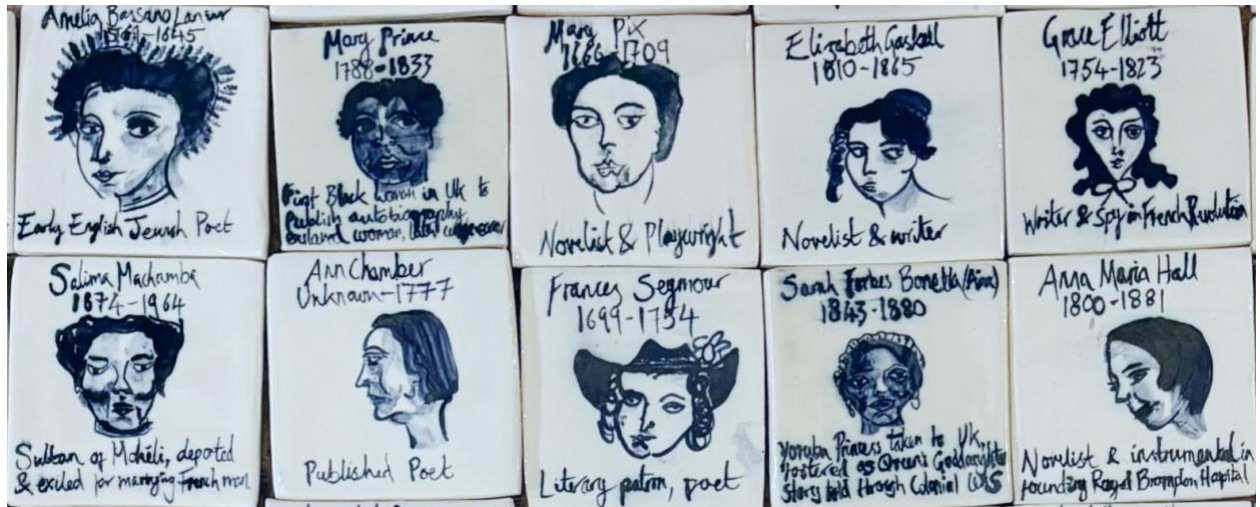 Amelia Bassano Lanier
1569-1645
Early English Jewish Poet
Mary Prince
1788-1833
First Black woman in UK to
publish autobiography
enslaved woman, later
Mary Pix
1666-1709
Novelist & Playwright
Elizabeth Gaskell
1810-1865
Novelist & writer
Grace Elliott
1754-1823
Writer & Spy in French Revolution
Salima Machamba
1874-1964
Sultan of Mohéli, deported
& exiled for marrying French man
Ann Chamber
Unknown-1777
Published Poet
Frances Seymour
1699-1754
Literary patron, poet
Sarah Forbes Bonetta (Aina)
1843-1880
Yoruba Princess taken to UK,
fostered as Queen's Goddaughter
Story told through Colonial
Anna Maria Hall
1800-1881
Novelist & instrumental in
founding Royal Brompton Hospital